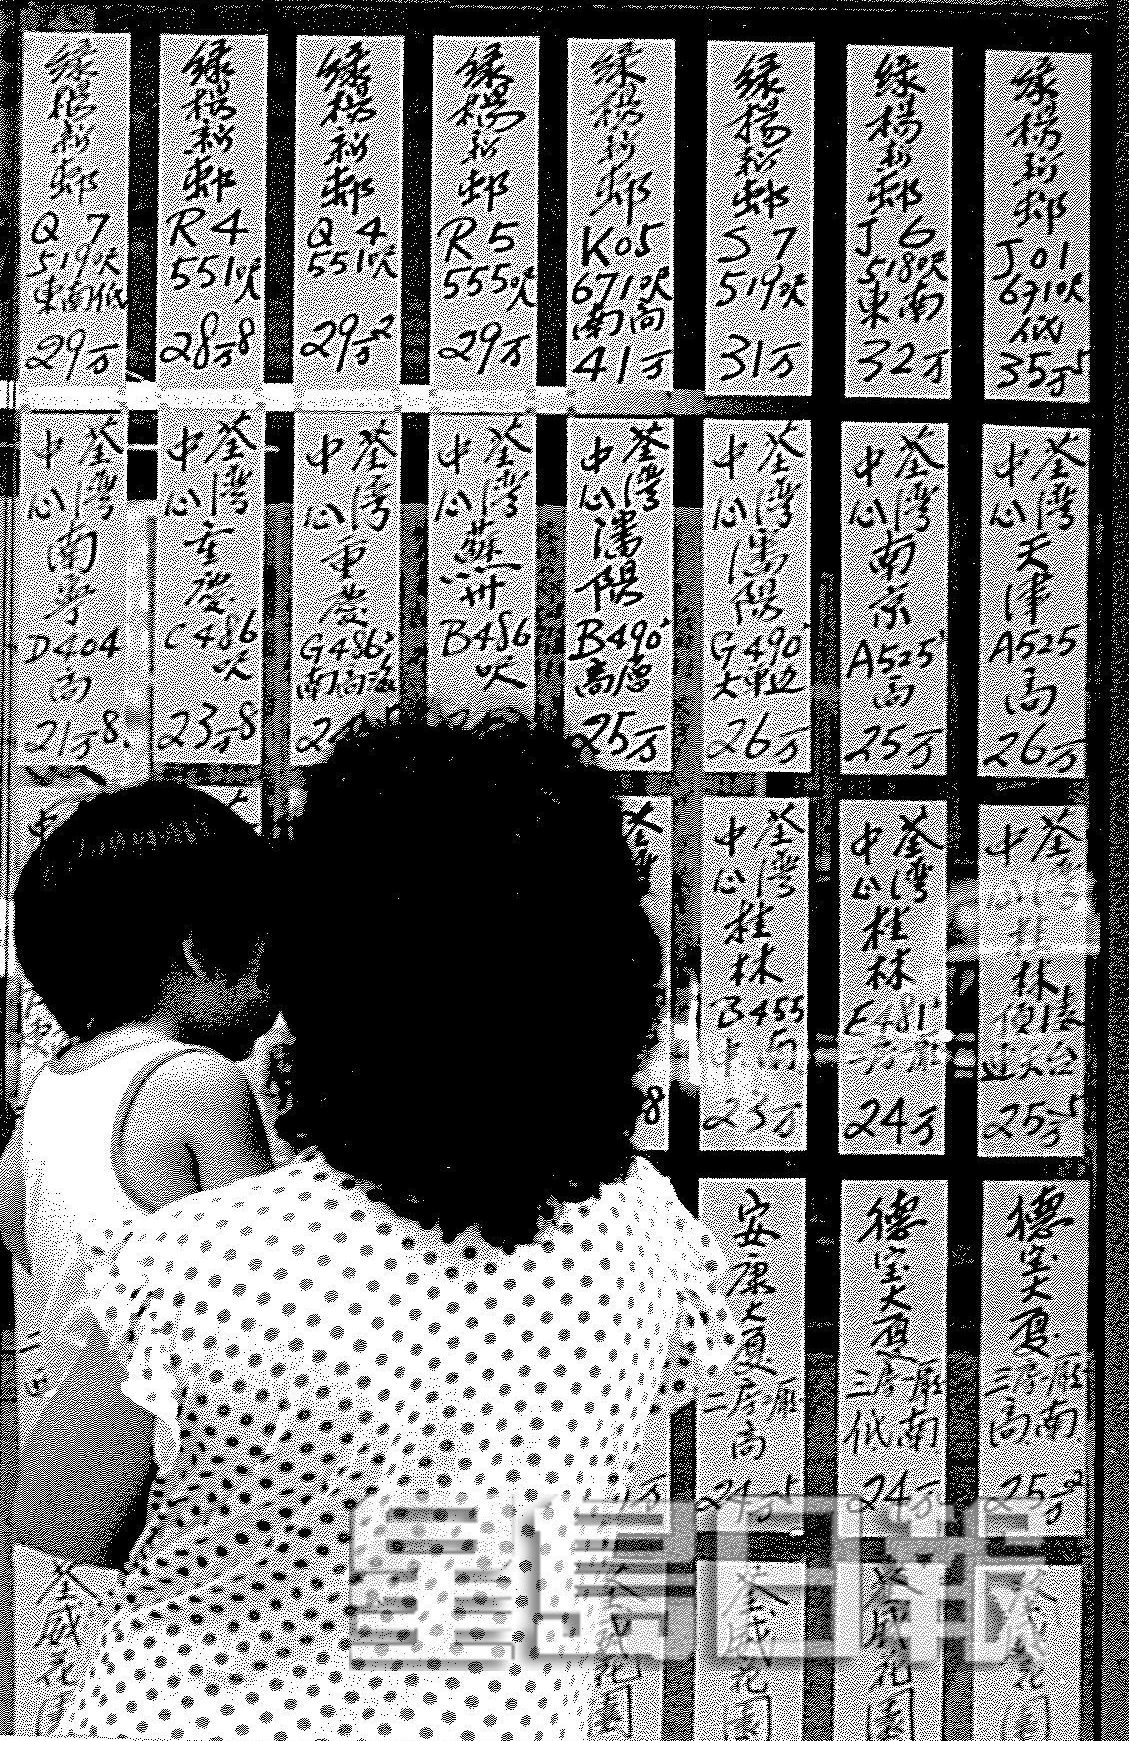 綠楊新邨
Q 7
519呎
東南低
29万
綠楊新邨
R 4
551呎
28万8
綠楊新邨
Q 4
551呎
29万2
綠楊新邨
R 5
555呎
29万
綠楊新邨
K05
671呎
南高
41万
綠楊新邨
S 7
519呎
31万
綠楊新邨
J 6
518呎
東南
32万
綠楊新邨
J01
631呎
低
35万5
荃灣
中心
南寧
D404
高
21万8
荃灣
中心
重慶
C486
呎
23万8
荃灣
中心
重慶
G486'
南高
荃灣
中心
蘇州
B486
呎
荃灣
中心
瀋陽
B490'
高
25万
荃灣
中心
瀋陽
G490'
26万
荃灣
中心
南京
A525'
高
25万
荃灣
中心
天津
A525
高
26万
荃灣
中心
桂林
B455
中南
23万
荃灣
中心
桂林
E481'
24万
荃灣
中心
林
25万5
8
安康大厦
二房廳
高
24万5
德宝大厦
三房廳
低南
24万
德宝大厦
三房廳
高南
25万2
荃威花園
荃威花園
荃威花園
荃威花園
荃威花園
星島日報